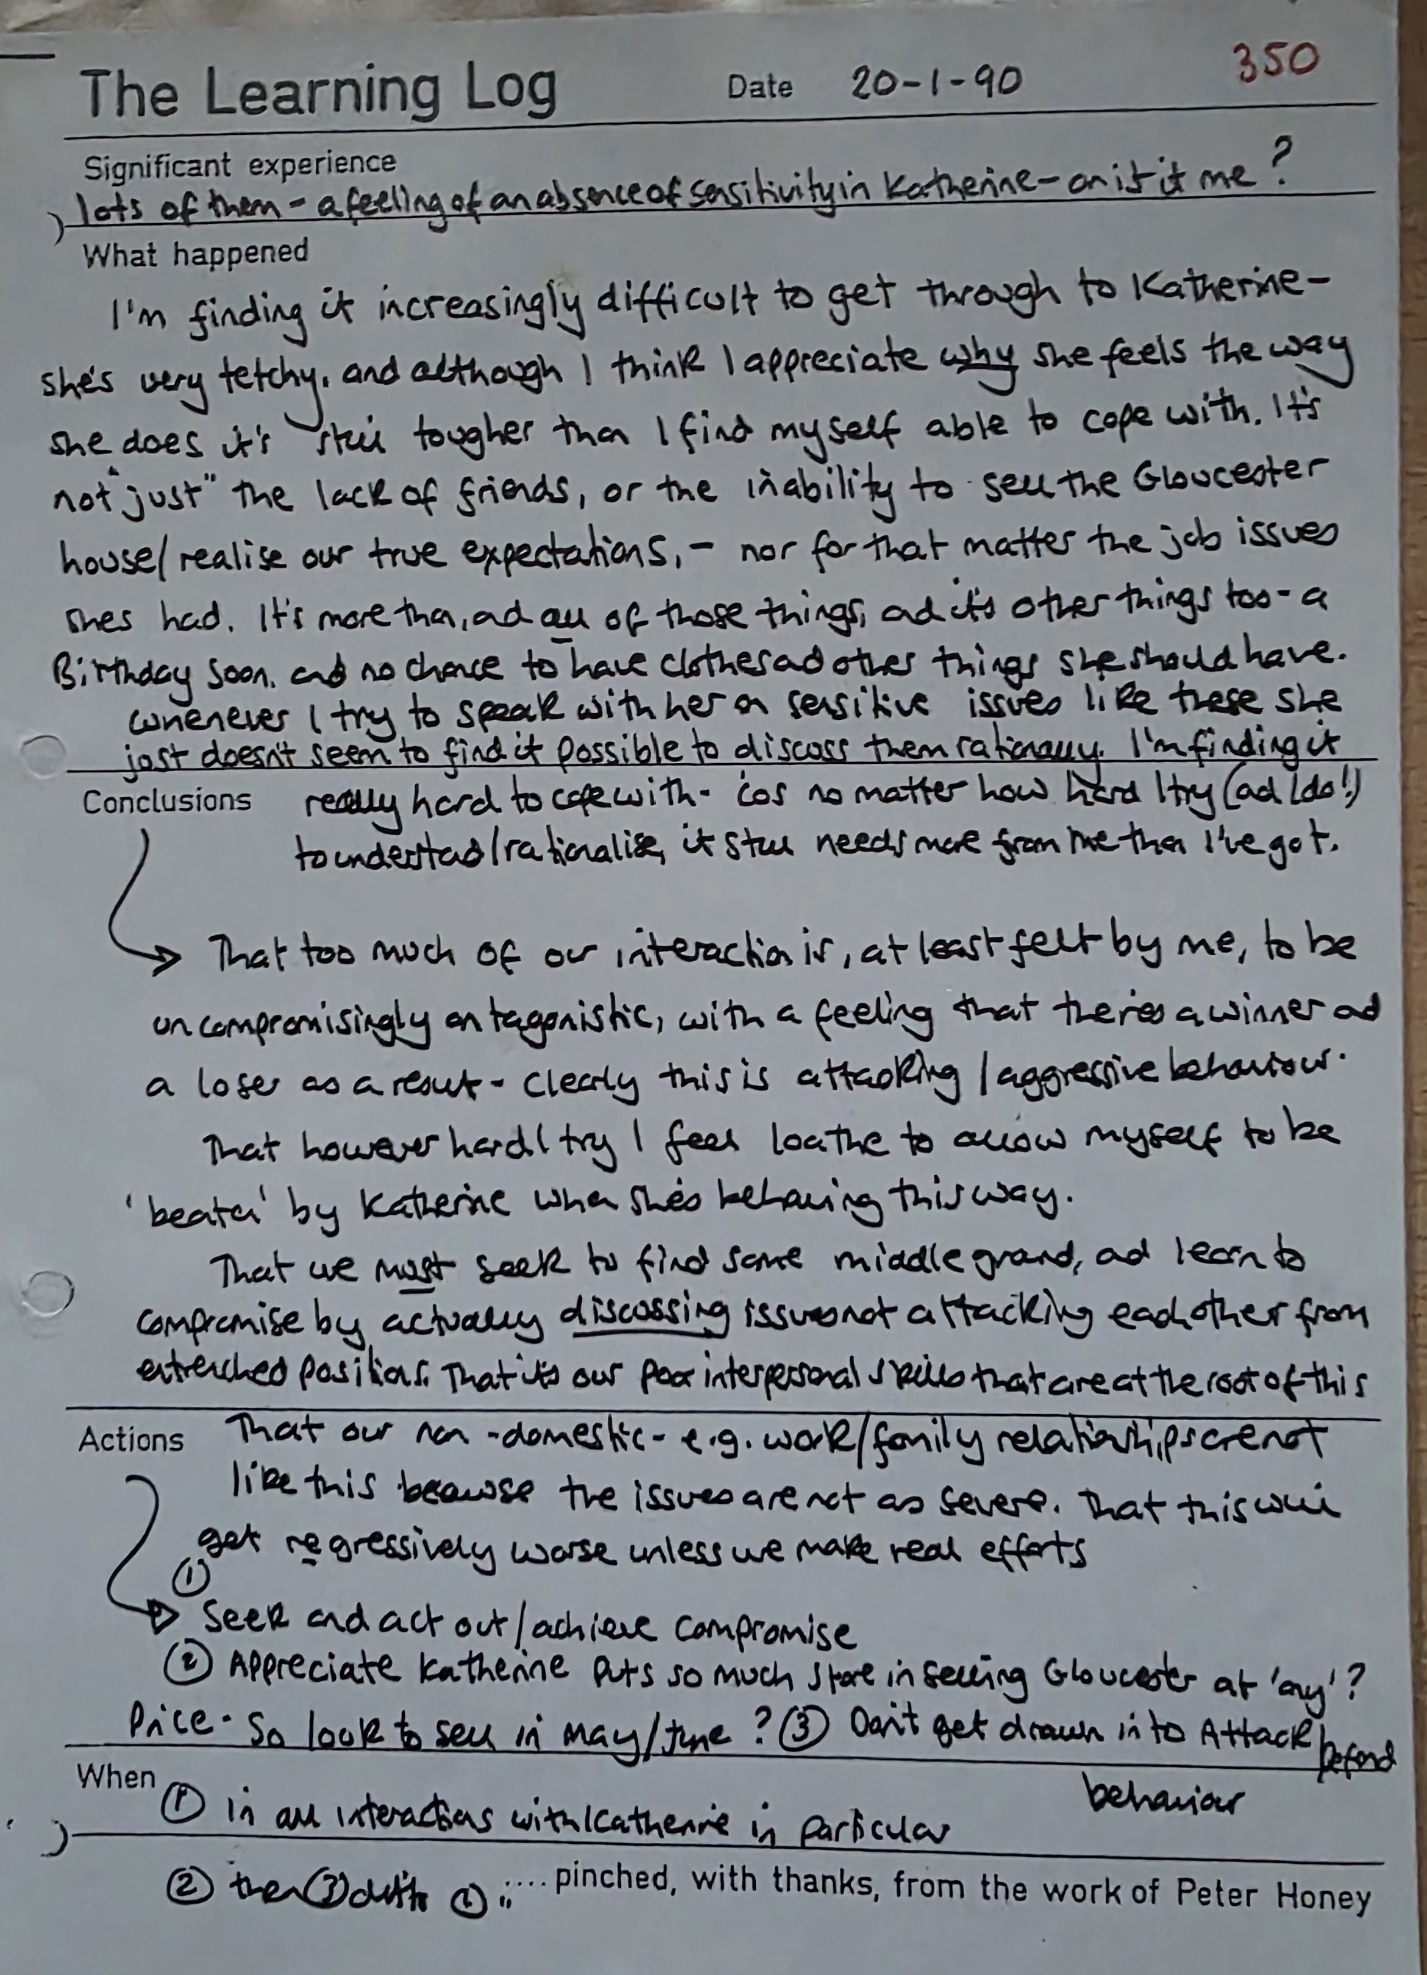 350
The Learning Log Date 20-1-90
Significant experience
lots of them - a feeling of an absence of sensitivity in Katherine - or is it me?
What happened
I'm finding it increasingly difficult to get through to Katherine -
she's very tetchy, and although I think I appreciate why she feels the way
she does it's still tougher than I find myself able to cope with. It's
not "just" the lack of friends, or the inability to sell the Gloucester
house/realise our true expectations, - nor for that matter the job issues
shes had. It's more than, and all of those things, and it's other things too - a
Birthday soon, and no chance to have clothes and other things she should have.
whenever I try to speak with her on sensitive issues like these she
just doesn't seem to find it possible to discuss them rationally. I'm finding it
Conclusions really hard to cope with - 'cos no matter how hard I try (and I do!)
to understand/rationalise, it still needs more from me than I've got.
That too much of our interaction is, at least felt by me, to be
uncompromisingly antagonistic, with a feeling that there's a winner and
a loser as a result - clearly this is attacking/aggressive behaviour.
That however hard I try I feel loathe to allow myself to be
'beaten' by Katherine when she's behaving this way.
That we must seek to find some middle ground, and learn to
compromise by actually discussing issues not attacking each other from
entrenched positions. That it's our poor interpersonal skills that are at the root of this
Actions That our non-domestic - e.g. work/family relationships are not
like this because the issues are not as severe. That this will
get regressively worse unless we make real efforts
① Seek and act out/achieve compromise
② Appreciate Katherine puts so much store in selling Gloucester at 'any'?
Price. So look to sell in May/June? ③ Don't get drawn in to Attack/Defend
behaviour
When ① in all interactions with Katherine in particular
② then ③
.... pinched, with thanks, from the work of Peter Honey